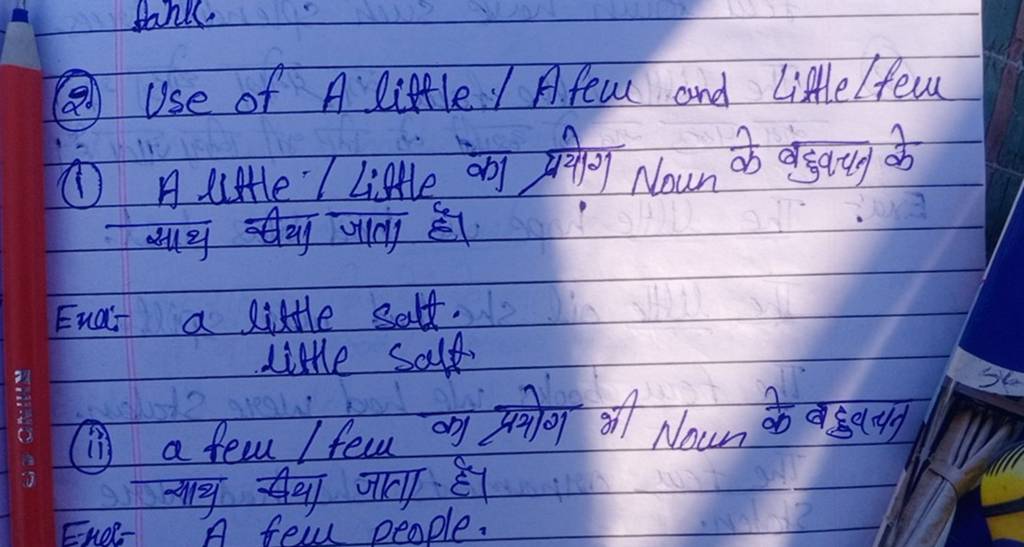 dank.
② Use of A little / A few and Little/few
① A little / Little का प्रयोग Noun के बहुवचन के
साथ कीया जाता है।
Exa:- a little salt.
little salt.
ⅱ a few / few का प्रयोग भी Noun के बहुवचन
साथ कीया जाता है।
Exa:- A few people.